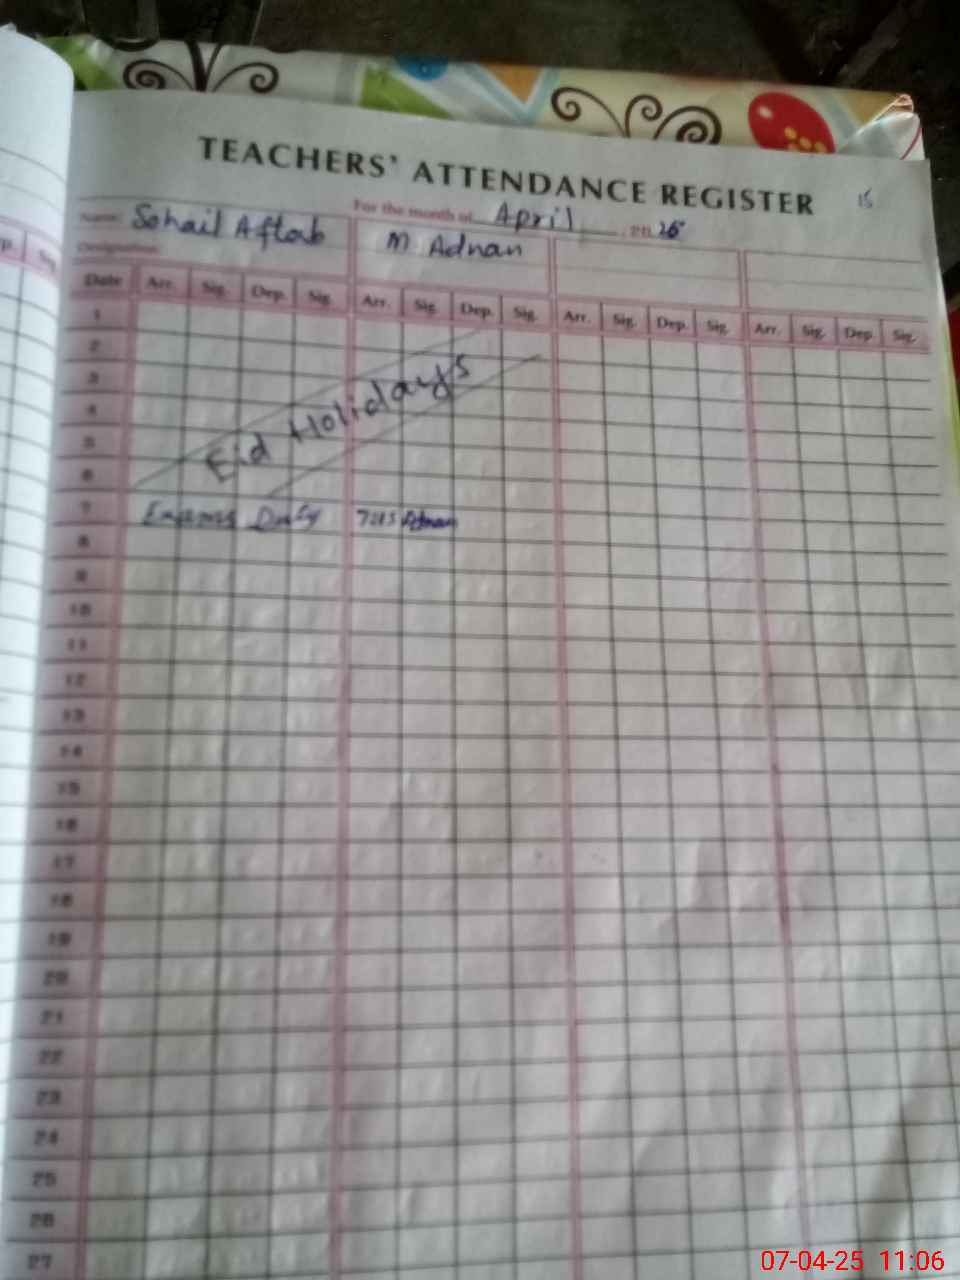 TEACHERS' ATTENDANCE REGISTER
15
For the month of April 20 25
Name: Sohail Aftab
M Adnan
Designation
Date Arr. Sig. Dep. Sig. Arr. Sig. Dep. Sig. Arr. Sig. Dep. Sig. Arr. Sig. Dep. Sig.
1
2
3
4
5
6
Eid Holidays
7 Exams Duty 7:15 Adnan
8
9
10
11
12
13
14
15
16
17
18
19
20
21
22
23
24
25
26
27
07-04-25 11:06